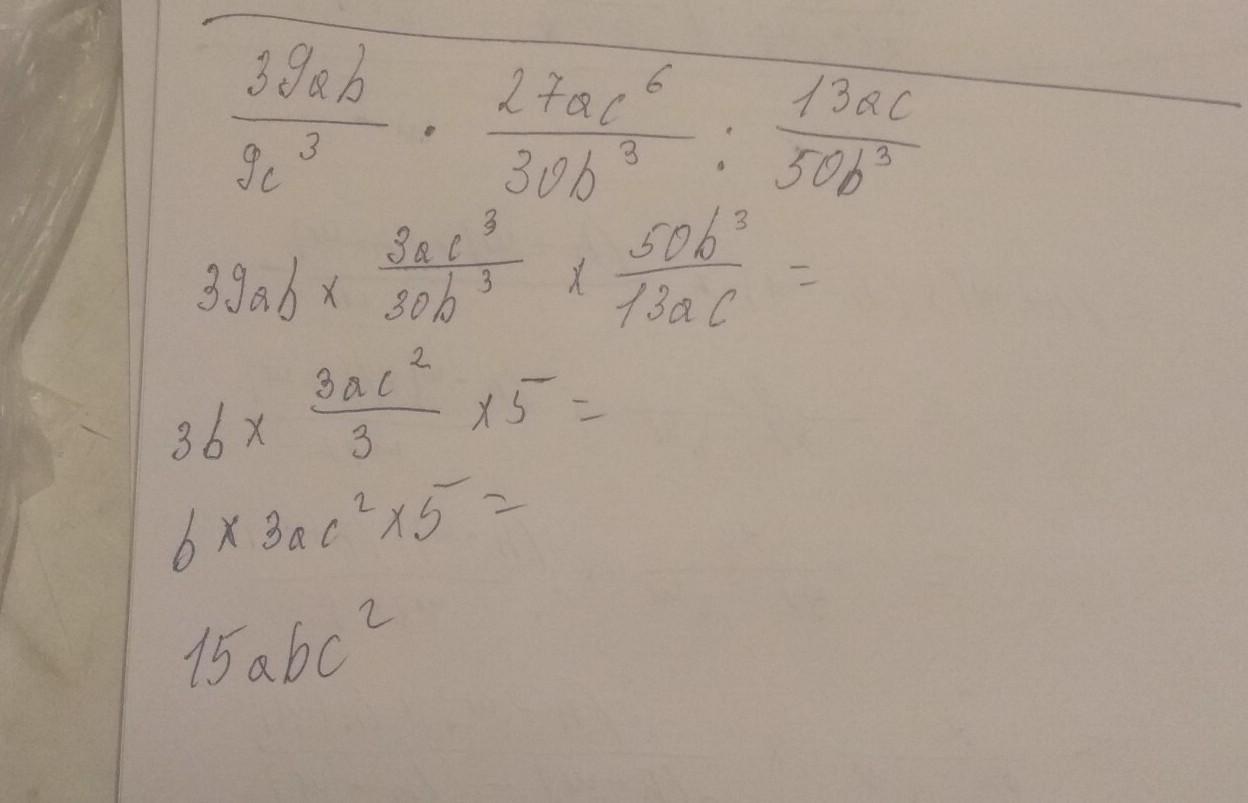 39ab/9c³ · 27ac⁶/30b³ : 13ac/50b³
39ab × 3ac³/30b³ × 50b³/13ac =
3b × 3ac²/3 × 5 =
b × 3ac² × 5 =
15abc²